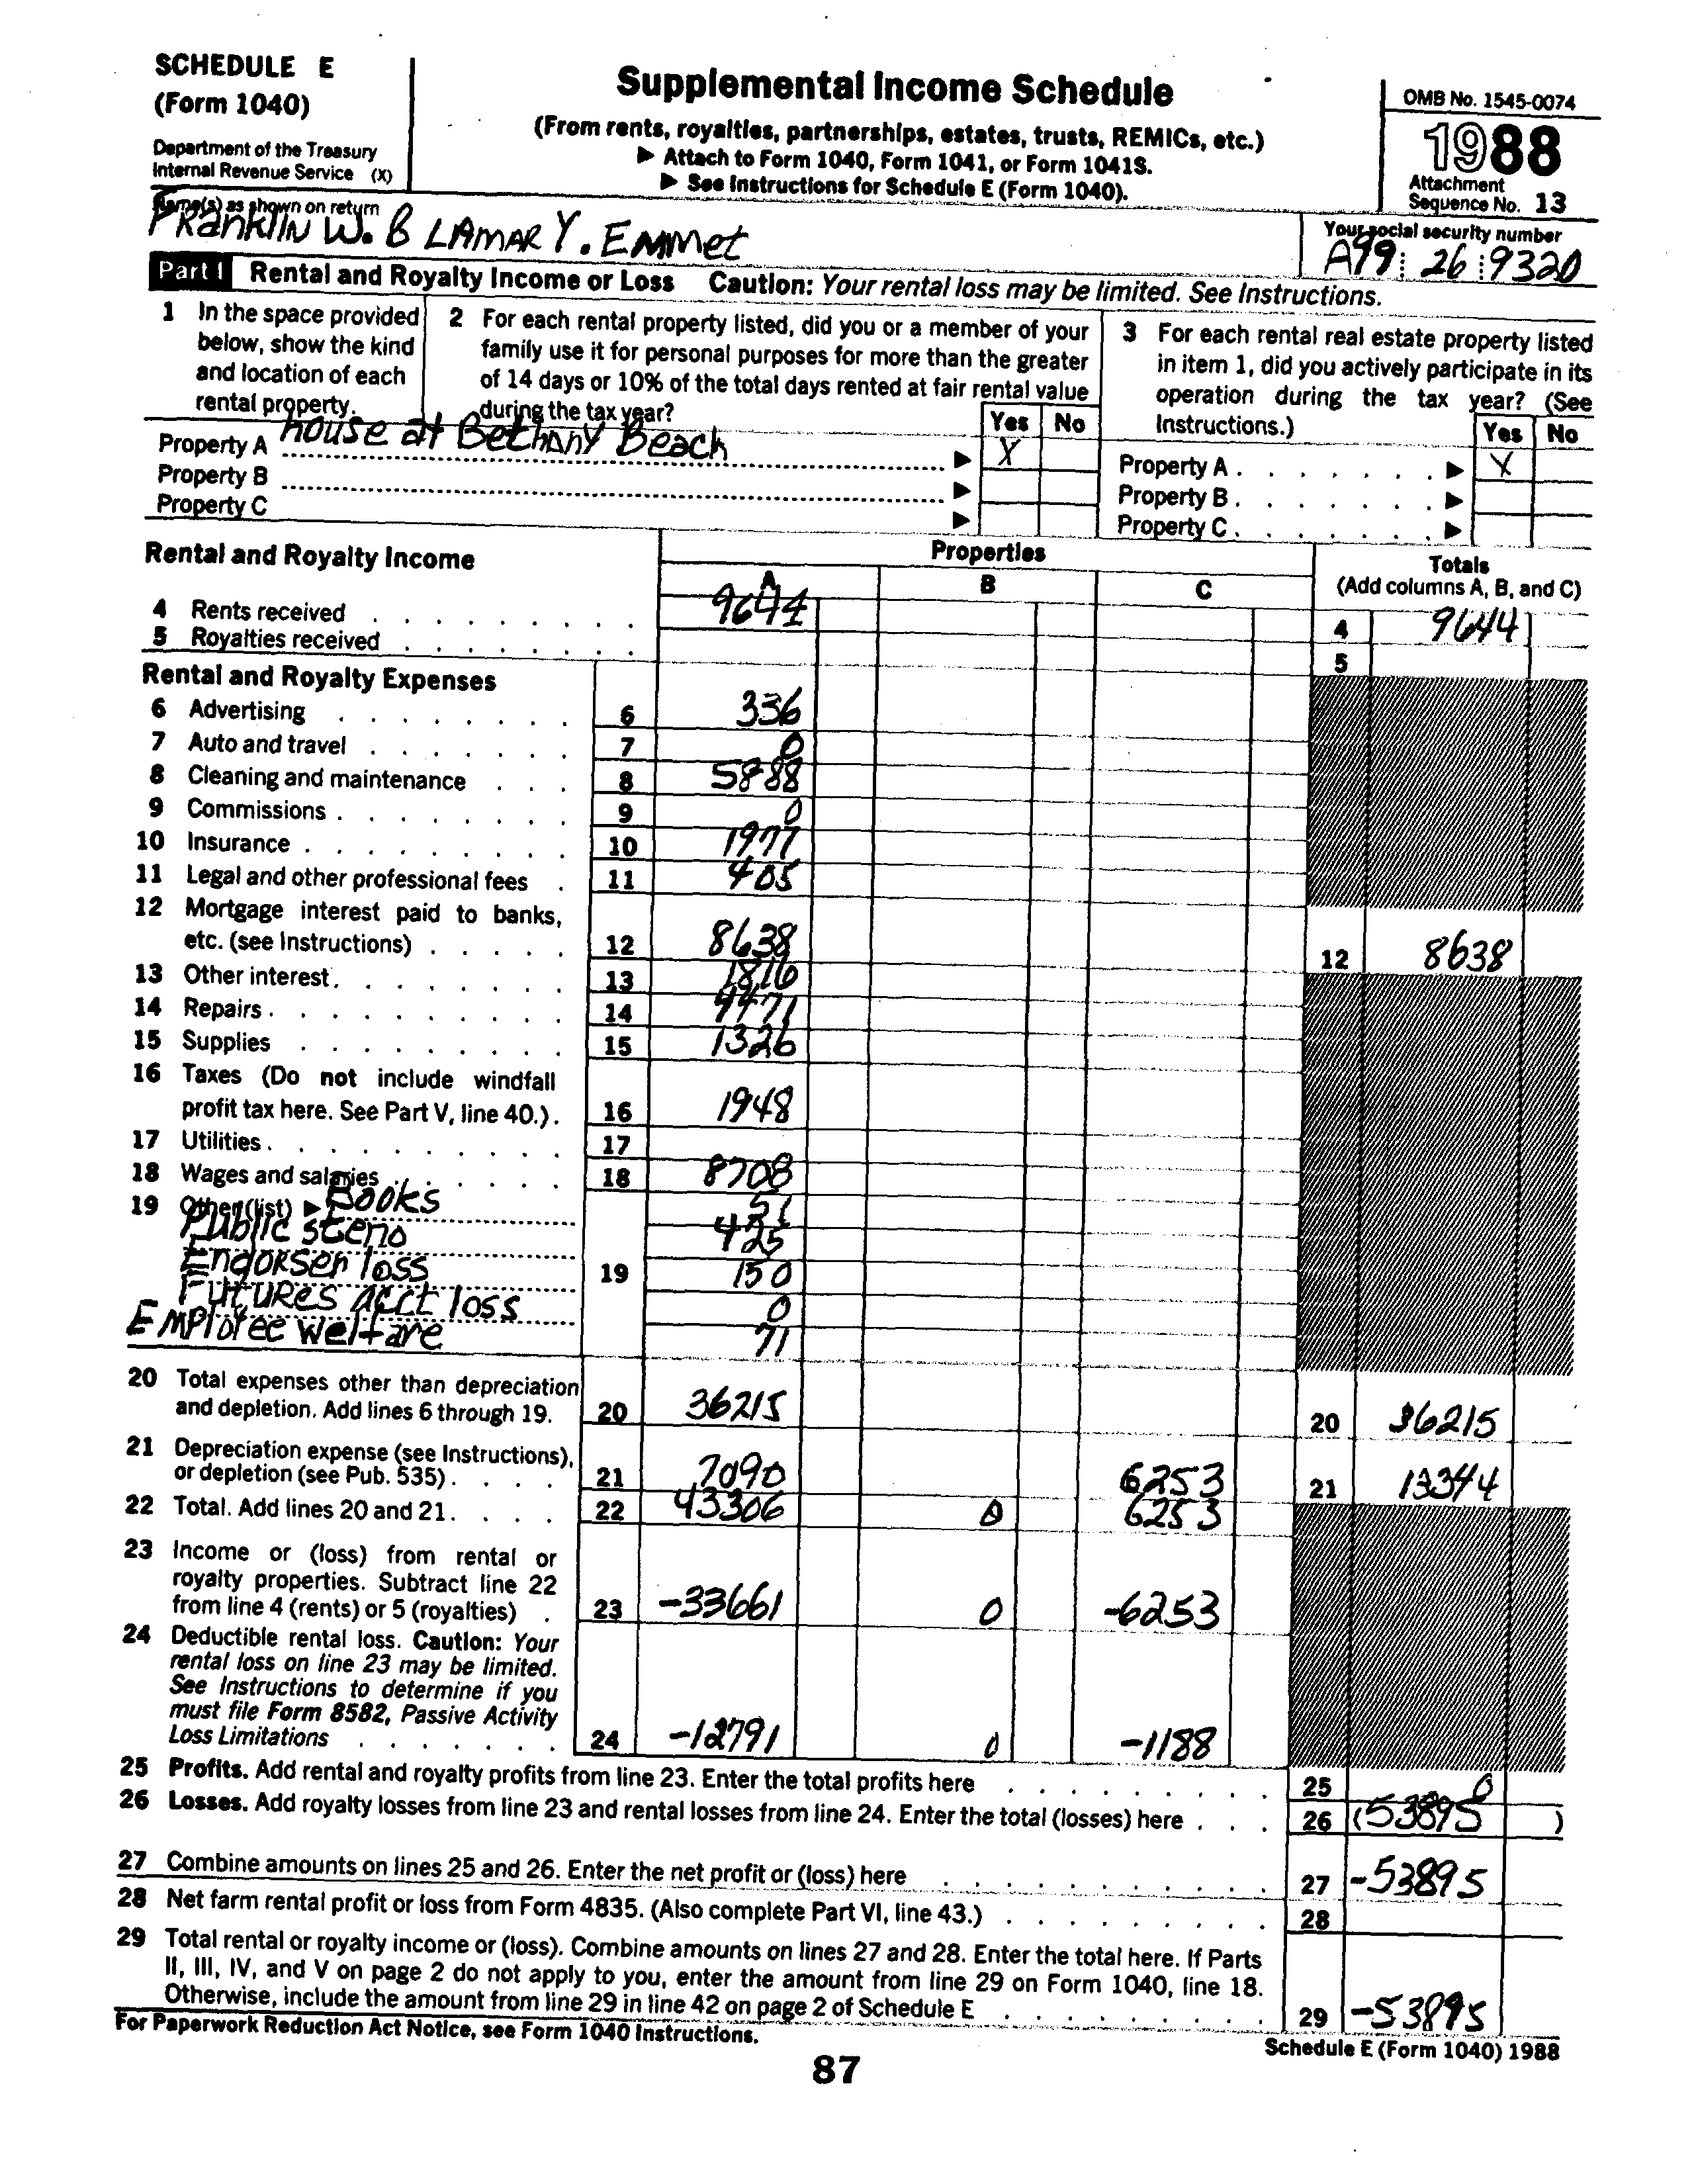 SCHEDULE E
(Form 1040)
Department of the Treasury
Internal Revenue Service (X)
Supplemental Income Schedule
(From rents, royalties, partnerships, estates, trusts, REMICs, etc.)
▶ Attach to Form 1040, Form 1041, or Form 1041S.
▶ See Instructions for Schedule E (Form 1040).
OMB No. 1545-0074
1988
Attachment
Sequence No. 13
Name(s) as shown on return
FRanklIN W. B LAMAR Y. EMMet
Your social security number
A99 26 9320
Part I Rental and Royalty Income or Loss Caution: Your rental loss may be limited. See Instructions.
1 In the space provided
below, show the kind
and location of each
rental property.
2 For each rental property listed, did you or a member of your
family use it for personal purposes for more than the greater
of 14 days or 10% of the total days rented at fair rental value
during the tax year?
Yes No
3 For each rental real estate property listed
in item 1, did you actively participate in its
operation during the tax year? (See
Instructions.)
Yes No
Property A house at Bethany Beach ▶ X
Property B ▶
Property C ▶
Property A . . . . . . . ▶ X
Property B . . . . . . . ▶
Property C . . . . . . . ▶
Rental and Royalty Income
Properties
A B C
Totals
(Add columns A, B, and C)
4 Rents received 9644 4 9644
5 Royalties received 5
Rental and Royalty Expenses
6 Advertising 6 336
7 Auto and travel 7 0
8 Cleaning and maintenance 8 5888
9 Commissions 9 0
10 Insurance 10 1977
11 Legal and other professional fees 11 405
12 Mortgage interest paid to banks,
etc. (see Instructions) 12 8638 12 8638
13 Other interest 13 1816
14 Repairs 14 4471
15 Supplies 15 1326
16 Taxes (Do not include windfall
profit tax here. See Part V, line 40.) . 16 1948
17 Utilities 17
18 Wages and salaries 18 8708
19 Other (list) ▶ Books 51
Public steno 425
Endorser loss 19 150
Futures acct loss 0
Employee welfare 71
20 Total expenses other than depreciation
and depletion. Add lines 6 through 19. 20 36215 20 36215
21 Depreciation expense (see Instructions),
or depletion (see Pub. 535) 21 7090 6253 21 13344
22 Total. Add lines 20 and 21 22 43306 0 6253
23 Income or (loss) from rental or
royalty properties. Subtract line 22
from line 4 (rents) or 5 (royalties) 23 -33661 0 -6253
24 Deductible rental loss. Caution: Your
rental loss on line 23 may be limited.
See Instructions to determine if you
must file Form 8582, Passive Activity
Loss Limitations 24 -12791 0 -1188
25 Profits. Add rental and royalty profits from line 23. Enter the total profits here 25 0
26 Losses. Add royalty losses from line 23 and rental losses from line 24. Enter the total (losses) here 26 (53895 )
27 Combine amounts on lines 25 and 26. Enter the net profit or (loss) here 27 -53895
28 Net farm rental profit or loss from Form 4835. (Also complete Part VI, line 43.) 28
29 Total rental or royalty income or (loss). Combine amounts on lines 27 and 28. Enter the total here. If Parts
II, III, IV, and V on page 2 do not apply to you, enter the amount from line 29 on Form 1040, line 18.
Otherwise, include the amount from line 29 in line 42 on page 2 of Schedule E 29 -53895
For Paperwork Reduction Act Notice, see Form 1040 Instructions.
Schedule E (Form 1040) 1988
87